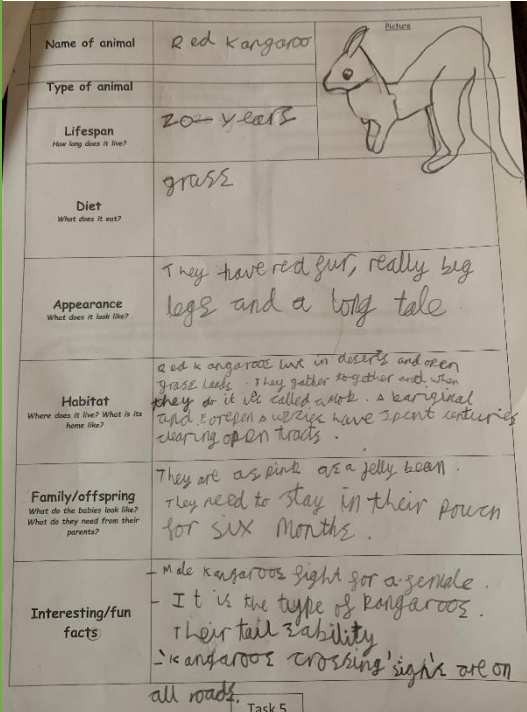 Picture
Name of animal
Red Kangaroo
Type of animal
Lifespan
How long does it live?
20- years
Diet
What does it eat?
grass
Appearance
What does it look like?
They have red fur, really big
legs and a long tale
Habitat
Where does it live? What is its
home like?
Red kangaroos live in deserts and open
grass lands. They gather together and when
they do it it's called a mob. Abariginal
and have spent centuries
clearing open tracts.
Family/offspring
What do the babies look like?
What do they need from their
parents?
They are as pink as a jelly bean.
They need to stay in their pouch
for six months.
Interesting/fun
facts
- Male kangaroos fight for a female.
- It is the type of kangaroos.
Their tail
- 'Kangaroos crossing' signs are on
all roads.
Task 5